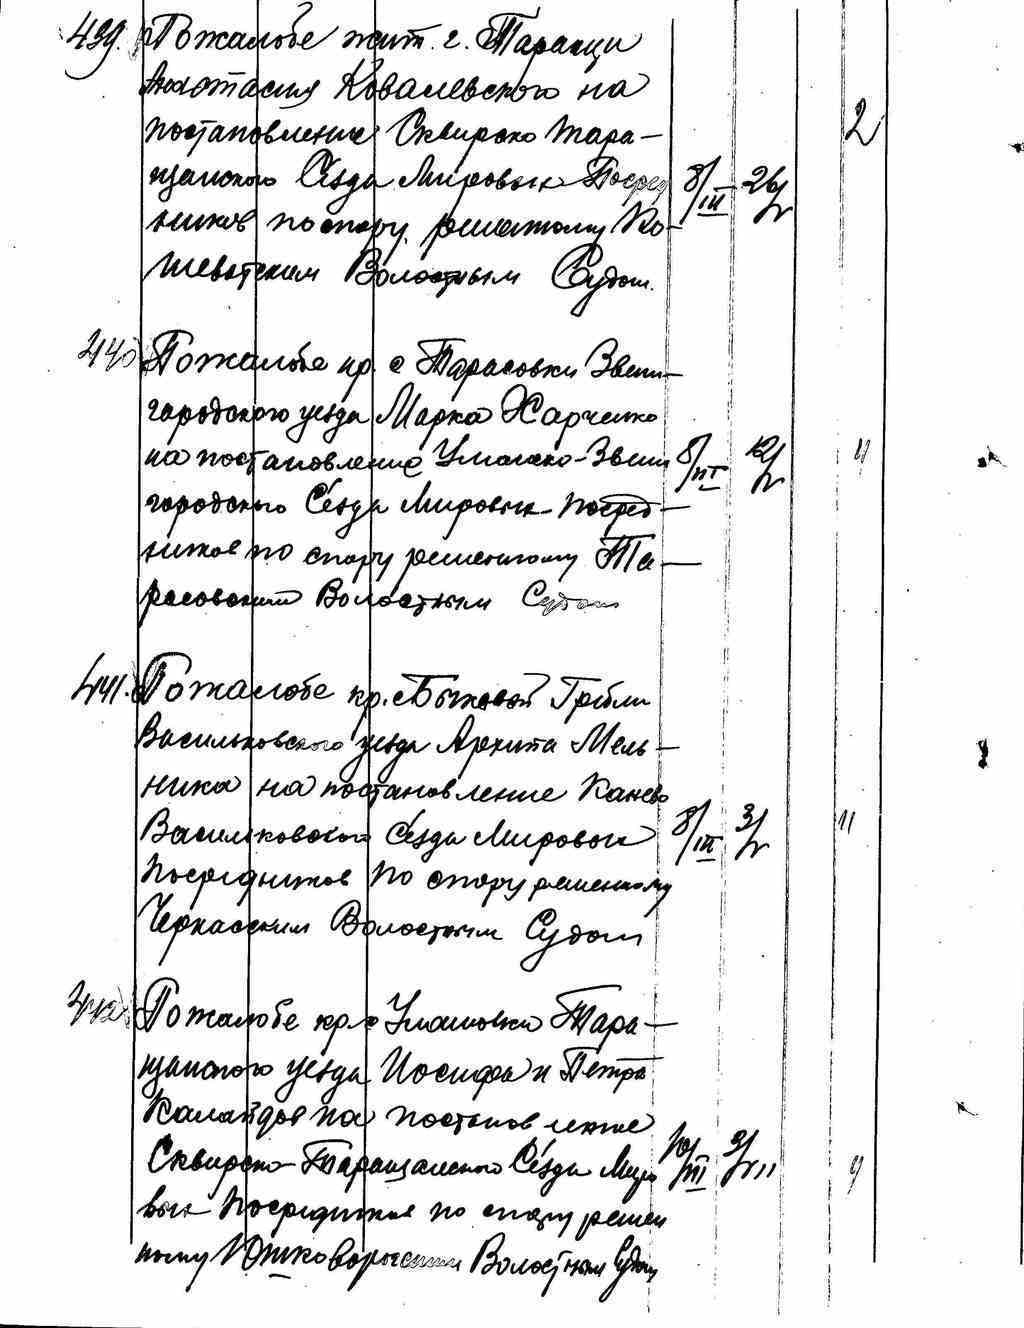 439. По жалобе жит. г. Таращи
Анастасия Ковалевского на
постановление Сквирско Тара-
щанского Сезда Мировых Посред
ников по спору, решенному Ко-
шеватским Волостным Судом. 8/III 26/V 2
440 По жалобе кр. с Тарасовки Звени-
городского уезда Марка Харченко
на постановление Уманско-Звени
городского Сезда Мировых Посред-
ников по спору решенному Та-
расовским Волостным Судом 8/III 12/V 11
441. По жалобе кр. с Быковой Гребли
Васильковского уезда Архипа Мель-
ника на постановление Канево
Васильковского Сезда Мировых
Посредников по спору решенному
Черкасским Волостным Судом 8/III 3/V 11
442 По жалобе кр. с Улашовки Тара-
щанского уезда Иосифа и Петра
на постановление
Сквирско-Таращанского Сезда Миро
вых Посредников по спору решен
ному Волостным Судом 10/III 9/VII 4